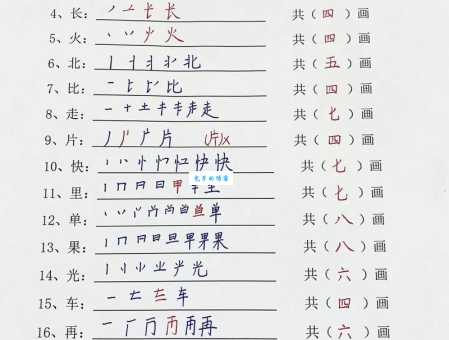 4、长：ノ 𠂉 长 长 共（四）画
5、火：丶 丷 火 火 共（四）画
6、北：丨 北 共（五）画
7、比：一 比 共（四）画
8、走：一 十 土 走 走 共（七）画
9、片：丿 片 (片)x 共（四）画
10、快：丶 丷 忄 快 快 共（七）画
11、里：丨 冂 日 日 甲 里 共（七）画
12、单：丶 丷 单 共（八）画
13、果：丨 冂 日 日 旦 早 果 果 共（八）画
14、光：丨 光 共（六）画
15、车：一 车 共（四）画
16、再：一 厂 冂 再 再 共（六）画